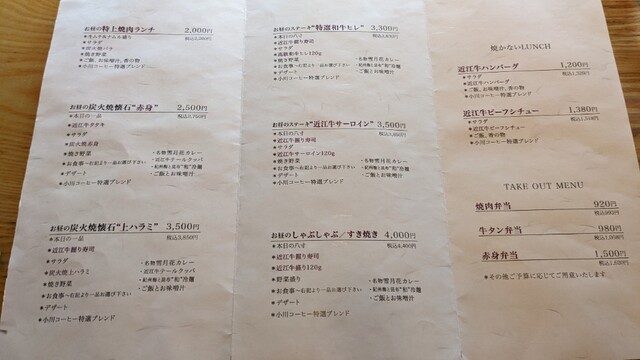 お昼の特上焼肉ランチ 2,000円
＊キムチ&ナムル盛り 税込2,200円
＊サラダ
＊炭火焼バラ
＊焼き野菜
＊ご飯、お味噌汁、香の物
＊小川コーヒー特選ブレンド
お昼の炭火焼懐石"赤身" 2,500円
＊本日の一品 税込2,750円
＊近江牛タタキ
＊サラダ
＊炭火焼赤身
＊焼き野菜
＊お食事～右記より一品お選び下さい
＊デザート
＊小川コーヒー特選ブレンド
・名物雪月花カレー
・近江牛テールクッパ
・紀州梅と昆布"和"冷麺
・ご飯とお味噌汁
お昼の炭火焼懐石"上ハラミ" 3,500円
＊本日の一品 税込3,850円
＊近江牛握り寿司
＊サラダ
＊炭火焼上ハラミ
＊焼き野菜
＊お食事～右記より一品お選び下さい
＊デザート
＊小川コーヒー特選ブレンド
・名物雪月花カレー
・近江牛テールクッパ
・紀州梅と昆布"和"冷麺
・ご飯とお味噌汁
お昼のステーキ"特選和牛ヒレ" 3,300円
＊本日の八寸 税込3,630円
＊近江牛握り寿司
＊サラダ
＊黒毛和牛ヒレ120g
＊焼き野菜
＊お食事～右記より一品お選び下さい
＊デザート
＊小川コーヒー特選ブレンド
・名物雪月花カレー
・紀州梅と昆布"和"冷麺
・ご飯とお味噌汁
お昼のステーキ"近江牛サーロイン" 3,500円
＊本日の八寸 税込3,850円
＊近江牛握り寿司
＊サラダ
＊近江牛サーロイン120g
＊焼き野菜
＊お食事～右記より一品お選び下さい
＊デザート
＊小川コーヒー特選ブレンド
・名物雪月花カレー
・紀州梅と昆布"和"冷麺
・ご飯とお味噌汁
お昼のしゃぶしゃぶ／すき焼き 4,000円
＊本日の八寸 税込4,400円
＊近江牛握り寿司
＊近江牛盛り120g
＊野菜盛り
＊お食事～右記より一品お選び下さい
＊デザート
＊小川コーヒー特選ブレンド
・名物雪月花カレー
・紀州梅と昆布"和"冷麺
・ご飯とお味噌汁
焼かないLUNCH
近江牛ハンバーグ 1,200円
＊サラダ 税込1,320円
＊近江牛ハンバーグ
＊ご飯、お味噌汁、香の物
＊小川コーヒー特選ブレンド
近江牛ビーフシチュー 1,380円
＊サラダ 税込1,518円
＊近江牛ビーフシチュー
＊ご飯、香の物
＊小川コーヒー特選ブレンド
TAKE OUT MENU
焼肉弁当 920円
牛タン弁当 980円
赤身弁当 1,500円
＊その他ご予算に応じてご用意いたします